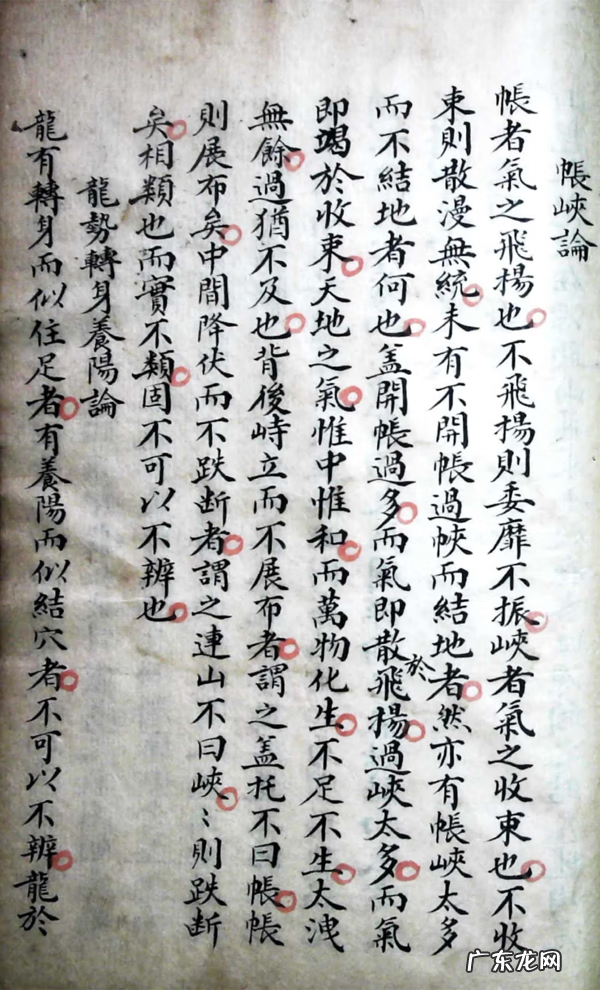 帳峽論
帳者氣之飛楊也不飛揚則委靡不振峽者氣之收束也不收
束則散漫無統未有不開帳過峽而結地者然亦有帳峽太多
而不結地者何也盖開帳過多而氣即散於飛揚過峽太多而氣
即竭於收束天地之氣惟中惟和而萬物化生不足不生太洩
無餘過猶不及也背後峙立而不展布者謂之盖托不曰帳帳
則展布矣中間降伏而不跌断者謂之連山不曰峽〻則跌断
矣相類也而實不類固不可以不辨也
龍勢轉身養陽論
龍有轉身而似住足者有養陽而似結穴者不可以不辨龍於
广东龙网